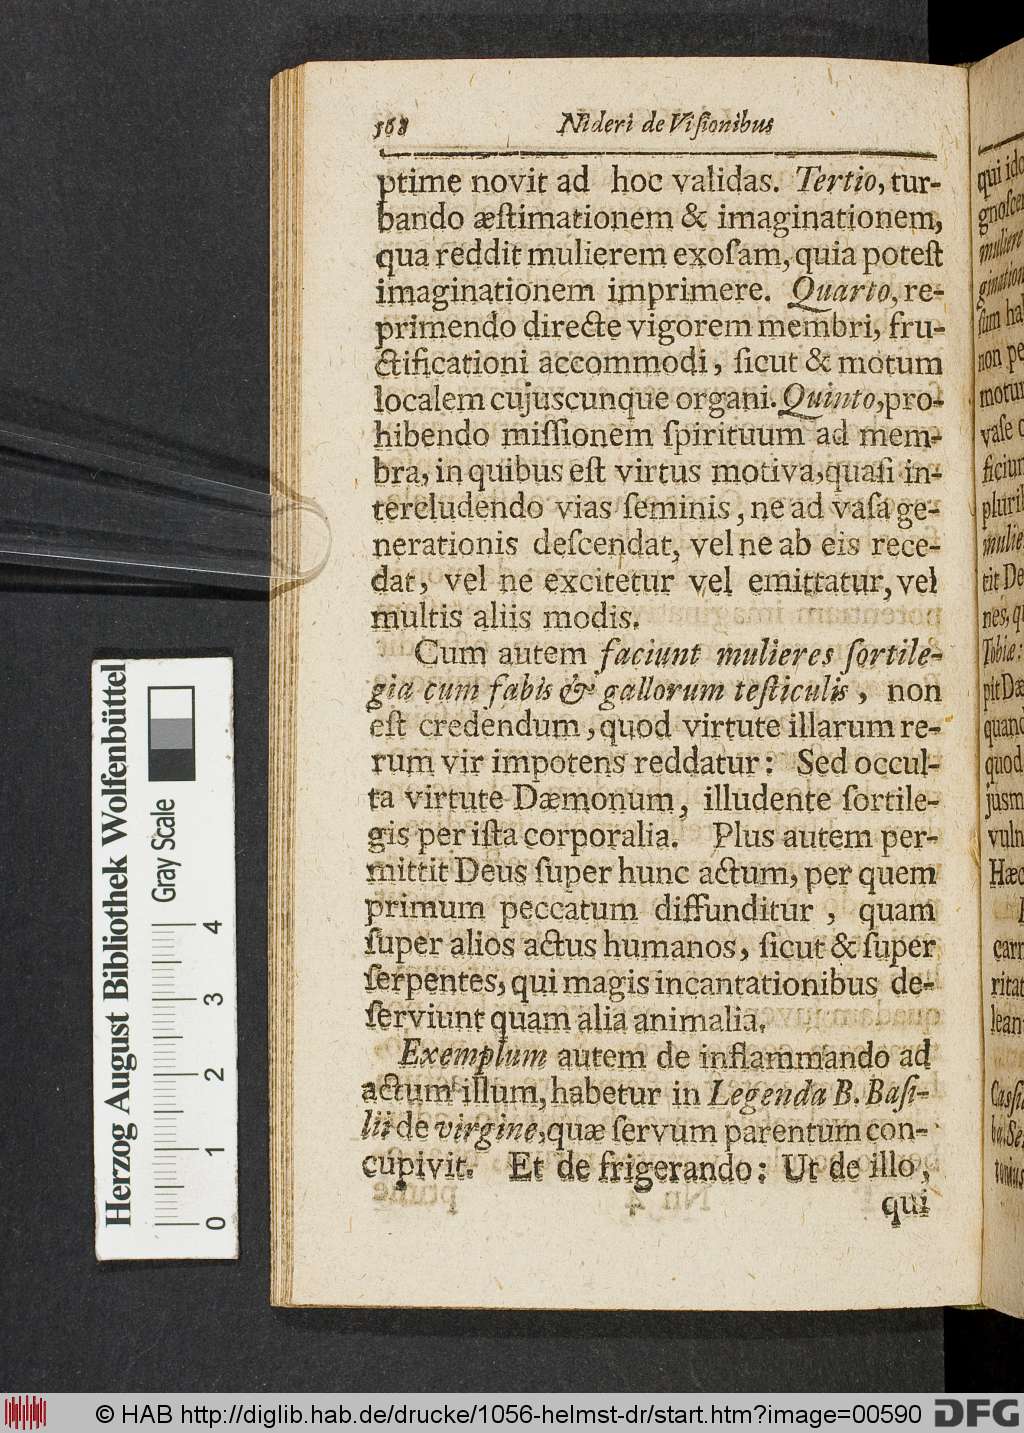 568 Nideri de Viſionibus
ptime novit ad hoc validas. Tertio, tur-
bando æſtimationem & imaginationem,
qua reddit mulierem exoſam, quia poteſt
imaginationem imprimere. Quarto, re-
primendo directe vigorem membri, fru-
ctificationi accommodi, ſicut & motum
localem cujuscunque organi. Quinto, pro-
hibendo miſſionem ſpirituum ad mem-
bra, in quibus eſt virtus motiva, quaſi in-
tercludendo vias ſeminis, ne ad vaſa ge-
nerationis deſcendat, vel ne ab eis rece-
dat, vel ne excitetur vel emittatur, vel
multis aliis modis.
Cum autem faciunt mulieres ſortile-
gia cum fabis & gallorum teſticulis, non
eſt credendum, quod virtute illarum re-
rum vir impotens reddatur: Sed occul-
ta virtute Dæmonum, illudente ſortile-
gis per iſta corporalia. Plus autem per-
mittit Deus ſuper hunc actum, per quem
primum peccatum diffunditur, quam
ſuper alios actus humanos, ſicut & ſuper
ſerpentes, qui magis incantationibus de-
ſerviunt quam alia animalia.
Exemplum autem de inflammando ad
actum illum, habetur in Legenda B. Baſi-
lii de virgine, quæ ſervum parentum con-
cupivit. Et de frigerando: Ut de illo,
qui
qui ido
gnoſcer
muliere
gination
ſum ha
non pe
motur
vaſe c
ficiun
plurib
mulie
tit De
nes, qu
Tobiæ:
pit Dæ
quand
quod
jusm
vuln
Hæc
carn
ritat
lean
Caſſia
tonius
Herzog August Bibliothek Wolfenbüttel
Gray Scale
0 1 2 3 4
© HAB http://diglib.hab.de/drucke/1056-helmst-dr/start.htm?image=00590
DFG